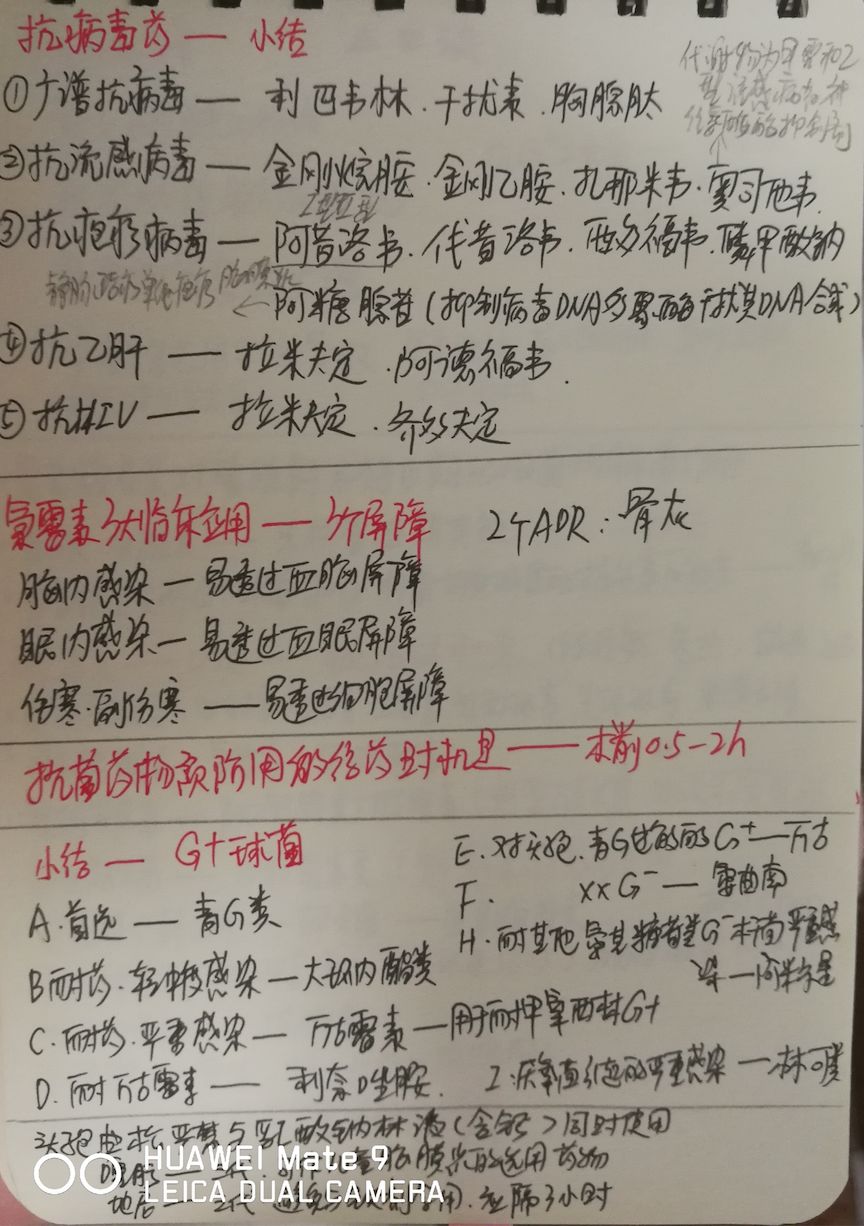 抗病毒药 — 小结
①广谱抗病毒 — 利巴韦林.干扰素.胸腺肽
代谢物为甲型和乙
型流感病毒神
经氨酸酶抑制剂
②抗流感病毒 — 金刚烷胺.金刚乙胺.扎那米韦.奥司他韦.
I型II型
③抗疱疹病毒 — 阿昔洛韦.伐昔洛韦.西多福韦.膦甲酸钠
←阿糖腺苷(抑制病毒DNA多聚酶干扰其DNA合成)
④抗乙肝 — 拉米夫定.阿德福韦.
⑤抗HIV — 拉米夫定.齐多夫定
氯霉素3大临床应用 — 3个屏障 2个ADR:骨灰
脑内感染 — 易透过血脑屏障
眼内感染 — 易透过血眼屏障
伤寒.副伤寒 — 易透过细胞屏障
抗菌药物预防用的给药时机是 — 术前0.5-2h
小结 — G+球菌
A.首选 — 青G类
B耐药.轻中度感染 — 大环内酯类
C.耐药.严重感染 — 万古霉素 — 用于耐甲氧西林G+
D.耐万古霉素 — 利奈唑胺.
E.对头孢.青G过敏的G+ — 万古
F. xxG- — 氨曲南
H.耐其他氨基糖苷类G-杆菌严重感
染 — 阿米卡星
I.厌氧菌引起的严重感染 — 林可类
头孢曲松严禁与乳酸钠林格(含钙)同时使用
HUAWEI Mate 9
LEICA DUAL CAMERA
应隔3小时